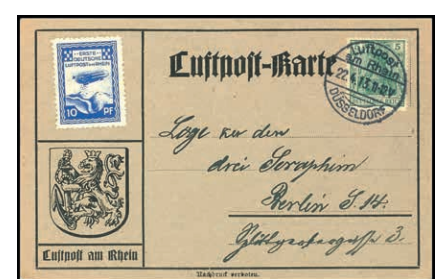 ERSTE
DEUTSCHE
LUFTPOST AM RHEIN
10 PF
Luftpost-Karte
5
Luftpost
am Rhein
DÜSSELDORF
Loge zu den
drei Seraphim
Berlin S. 14.
3.
Luftpost am Rhein
Nachdruck verboten.